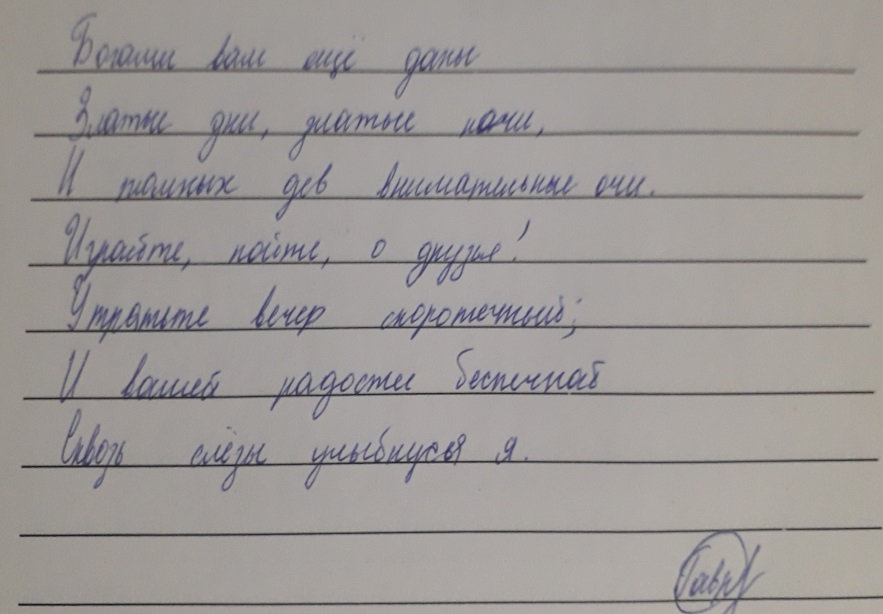 Богами вам ещё даны
Златые дни, златые ночи,
И томных дев внимательные очи.
Играйте, пойте, о друзья!
Утратьте вечер скоротечный;
И вашей радости беспечной
Сквозь слёзы улыбнусь я.